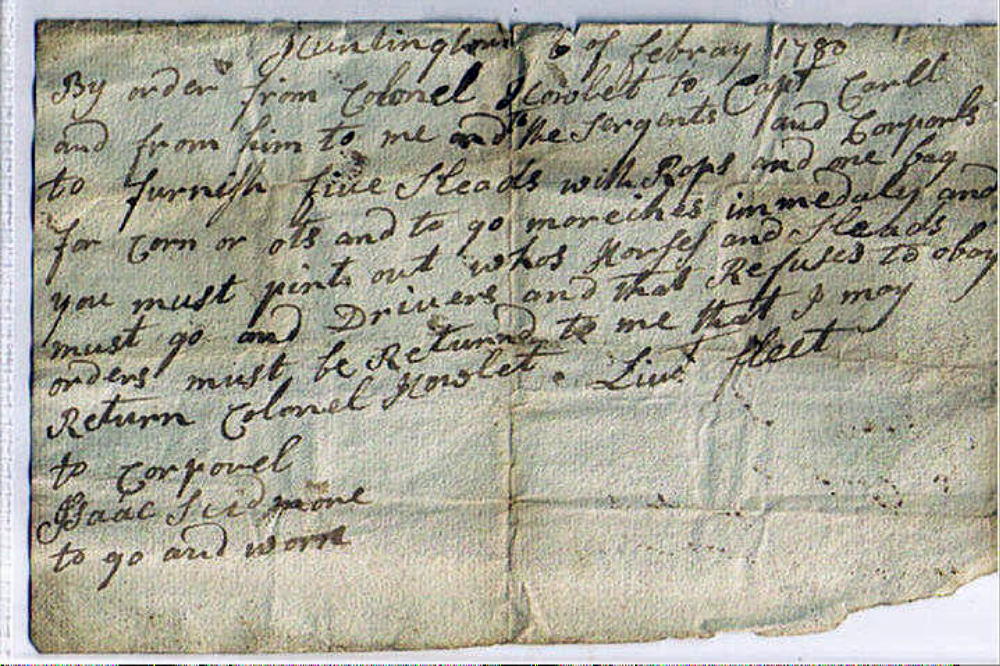 Huntington 6 of febray 1780
By order from Colonel Howlet to Capt Carll
and from him to me and the Sergents and Corporls
to furnish five Sleads with Rops and one bag
for corn or ots and to go moreiches immedaly and
you must pint out whos Horses and Sleads
must go and Drivers and that Refuses to obay
orders must be Returnd to me that I may
Return Colonel Howlet. Liut fleet
to Corporel
Isaac Scidmore
to go and worn